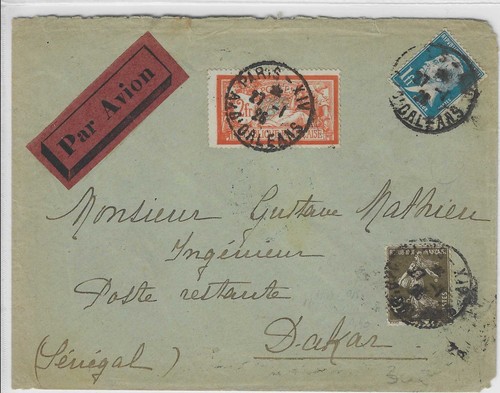 Par Avion
PARIS - XIV
27 -1
26
AV. D'ORLEANS
1F50
D'ORLEANS
Monsieur Gustave Mathieu
Ingénieur
Poste restante
Dakar
(Sénégal)
XIV